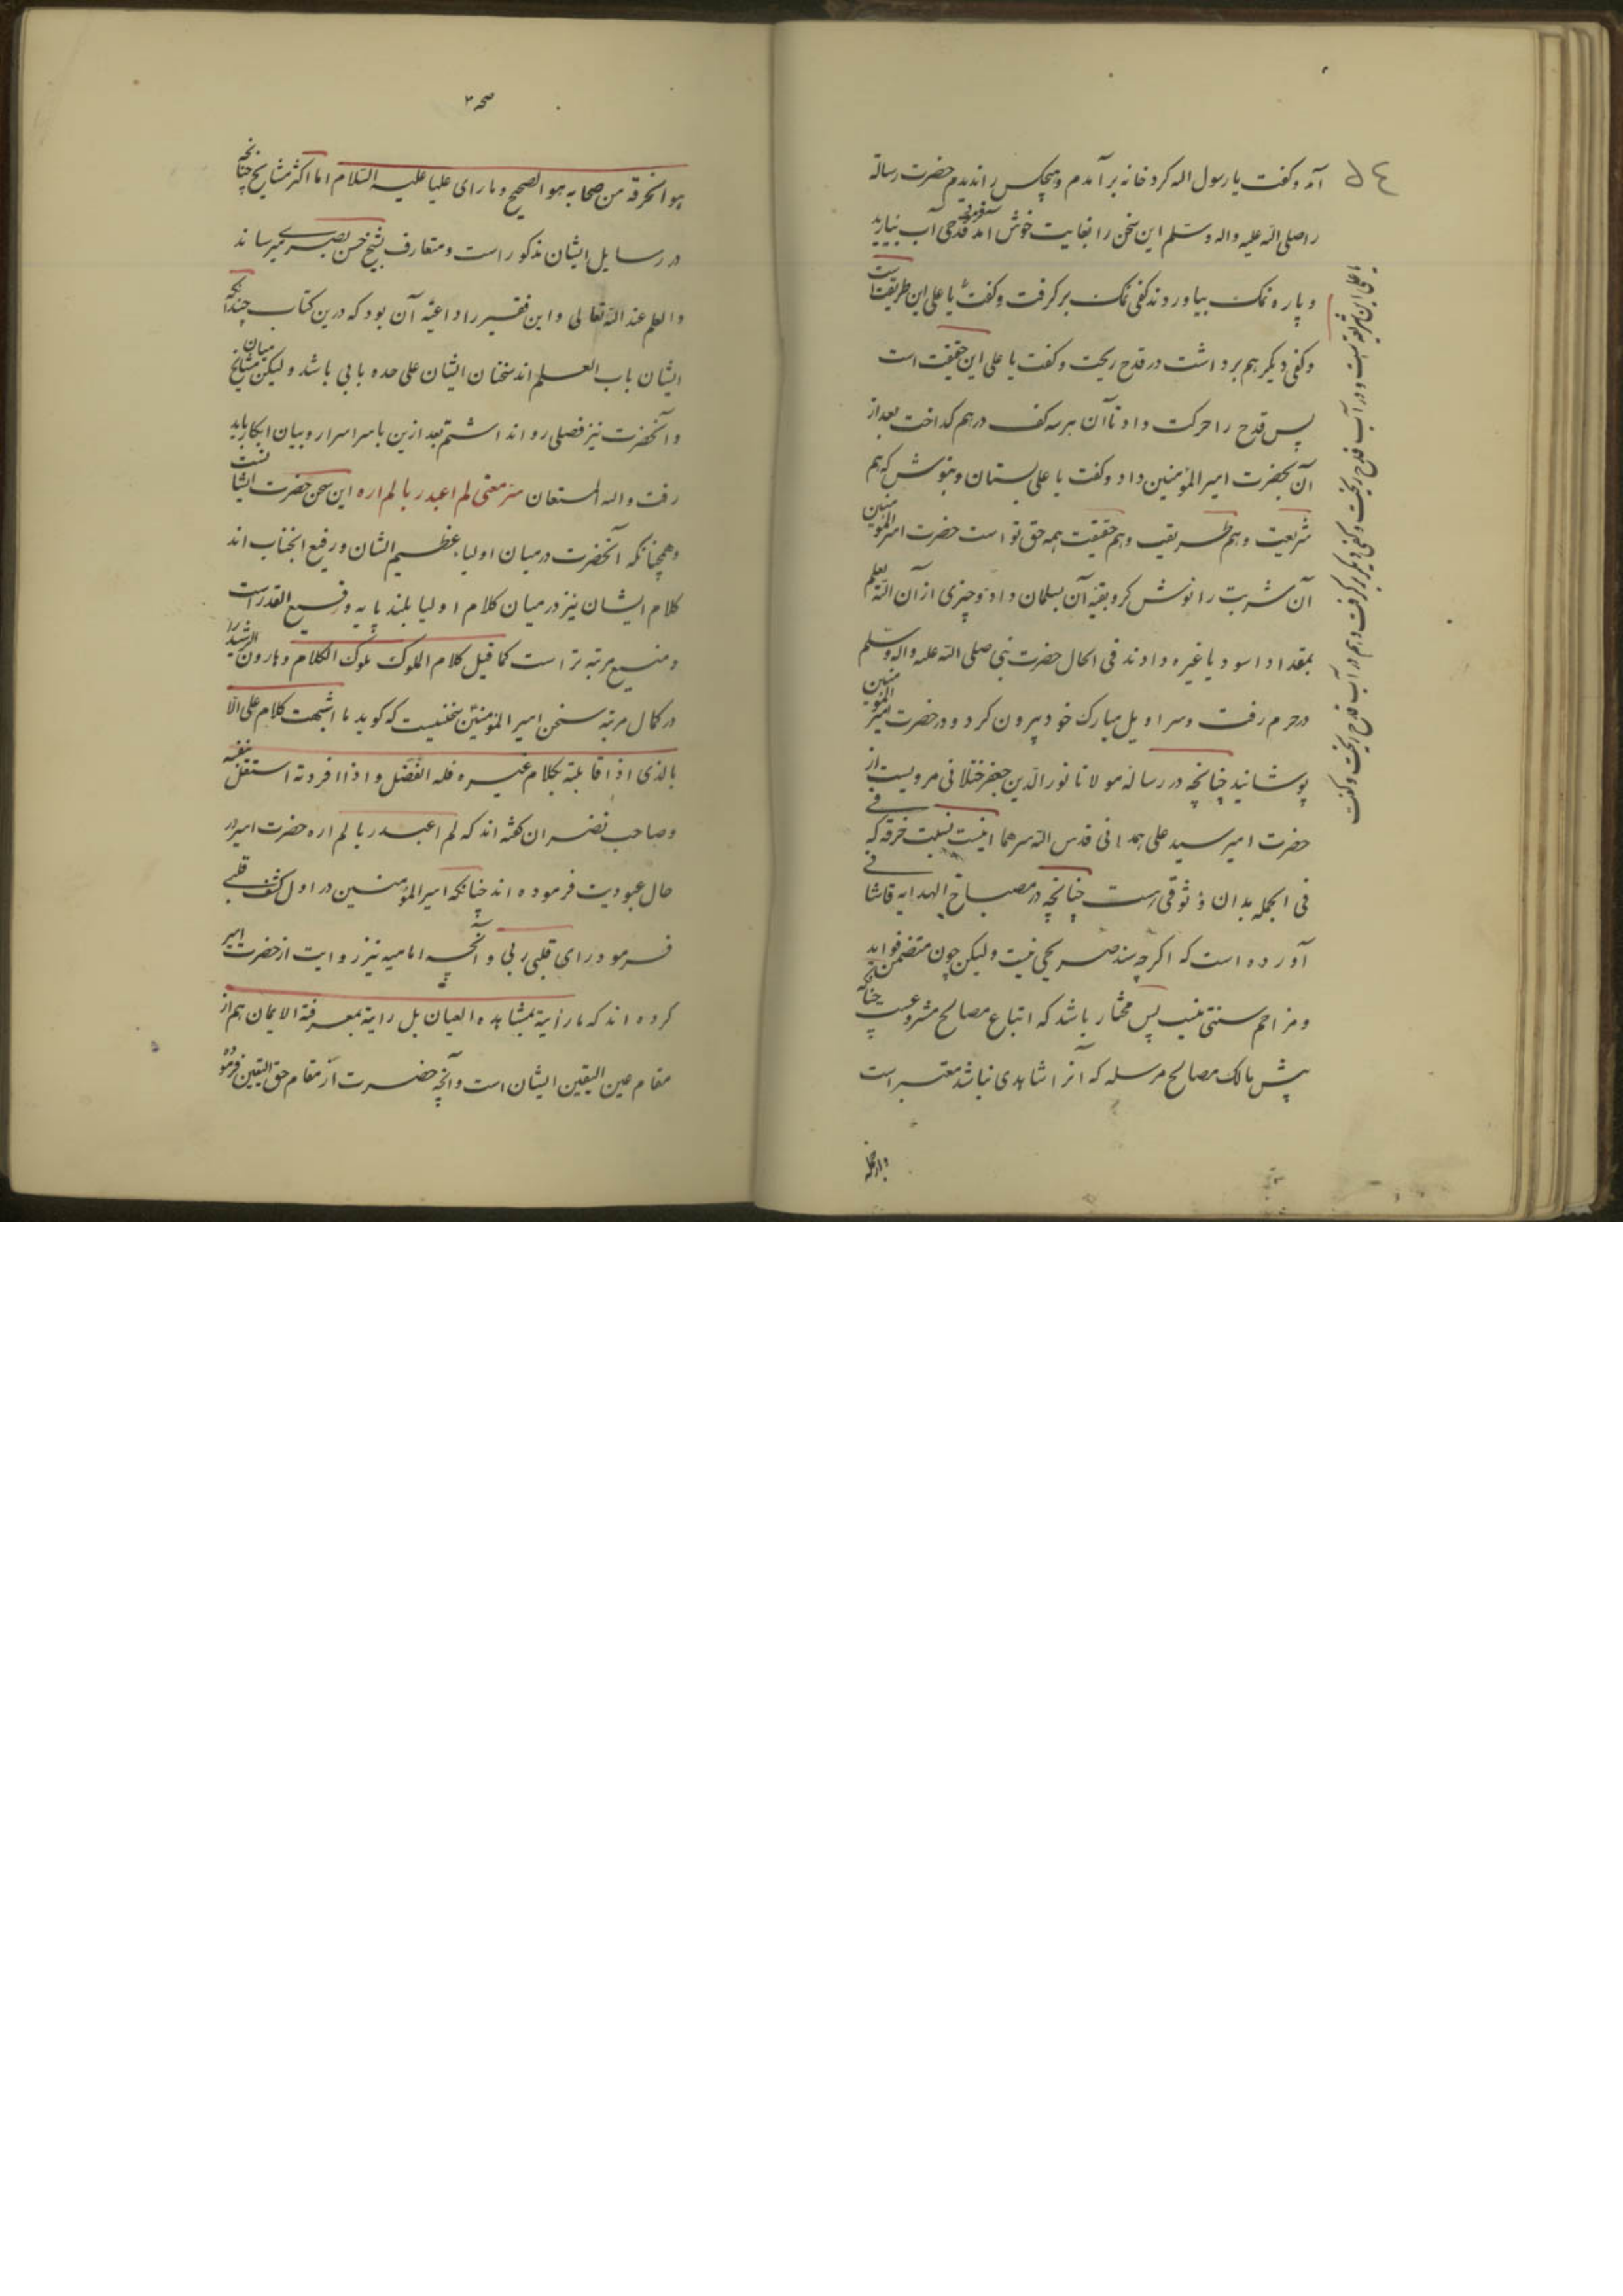 آمد و کفت یا رسول اله کرد خانه برآمدم و هیچکس را ندیدم حضرت رسالة
را صلی الله علیه واله وسلم این سخن را بغایت خوش آمد فرمود قدحی آب بیارید
و پاره نمک بیاوردند کفی نمک برکرفت و کفت یا علی این طریقت است
وکفی دیکر هم برداشت در قدح ریخت وکفت یا علی این حقیقت است
پس قدح را حرکت داد تا آن هر سه کف درهم کداخت بعد از
آن بحضرت امیر المؤمنین داد وکفت یا علی بستان و بنوش که هم
شریعت و هم طریقت و هم حقیقت همه حق تو است حضرت امیر المؤمنین
آن شربت را نوش کرد و بقیه آن بسلمان داد و چیزی از آن الله یعلم
بمقداد اسود یا غیره دادند فی الحال حضرت نبی صلی الله علیه واله وسلم
در حرم رفت و سراویل مبارک خود بیرون کرد و در حضرت امیر المؤمنین
پوشانید چنانچه در رسالهٔ مولانا نورالدین جعفر ختلانی مرویست از
حضرت امیر سید علی همدانی قدس الله سرهما اینست نسبت خرقه که
فی الجمله بدان وثوقی هست چنانچه در مصباح الهدایه قاشانی
آورده است که اکرچه سند صریحی نیست ولیکن چون متضمن فوایدست
و مزاحم سنتی نیست پس مختار باشد که اتباع مصالح مشروعست چنانکه
پیش مالک مصالح مرسله که آنرا شاهدی نباشد معتبر است
یا علی این شریعت است و در آب قدح ریخت وکفی دیکر برکرفت و هم در آب قدح ریخت وکفت
هو الخرقة من صحابه هو الصحیح و ما رای علیا علیه السلام اما اکثر مشایخ چنانچه
در رسایل ایشان مذکور است و متعارف بشیخ حسن بصری میرساند
والعلم عند الله تعالی و این فقیر را داعیه آن بود که درین کتاب چنانکه
ایشان باب العلم اند سخنان ایشان علی حده بابی باشد ولیکن میان مشایخ
و آنحضرت نیز فصلی روا نداشتم بعد ازین باسر اسرار و بیان ابکار باید
رفت واله المستعان سر معنی لم اعبد ربا لم اره این سخن حضرت ایشانست
و همچنانکه آنحضرت درمیان اولیا عظیم الشان و رفیع الجناب اند
کلام ایشان نیز درمیان کلام اولیا بلند پایه و رفیع القدر است
و منیع مرتبه تر است کما قیل کلام الملوک ملوک الکلام و هارون الرشید را
در کمال مرتبه سخن امیر المؤمنین سخنیست که کوید ما اشبهت کلام علی الا
بالذی اذا قابلته بکلام غیره فله الفضل و اذا افردته استقل بنفسه
و صاحب نضران کفته اند که لم اعبد ربا لم اره حضرت امیر در
حال عبودیت فرموده اند چنانکه امیر المؤمنین در اول کشف قلبی
فرمود رای قلبی ربی و آنچه امامیه نیز روایت از حضرت امیر
کرده اند که ما رأیته بمشاهده العیان بل رایته بمعرفة الایمان هم از
مقام عین الیقین ایشان است و آنچه حضرت از مقام حق الیقین فرموده